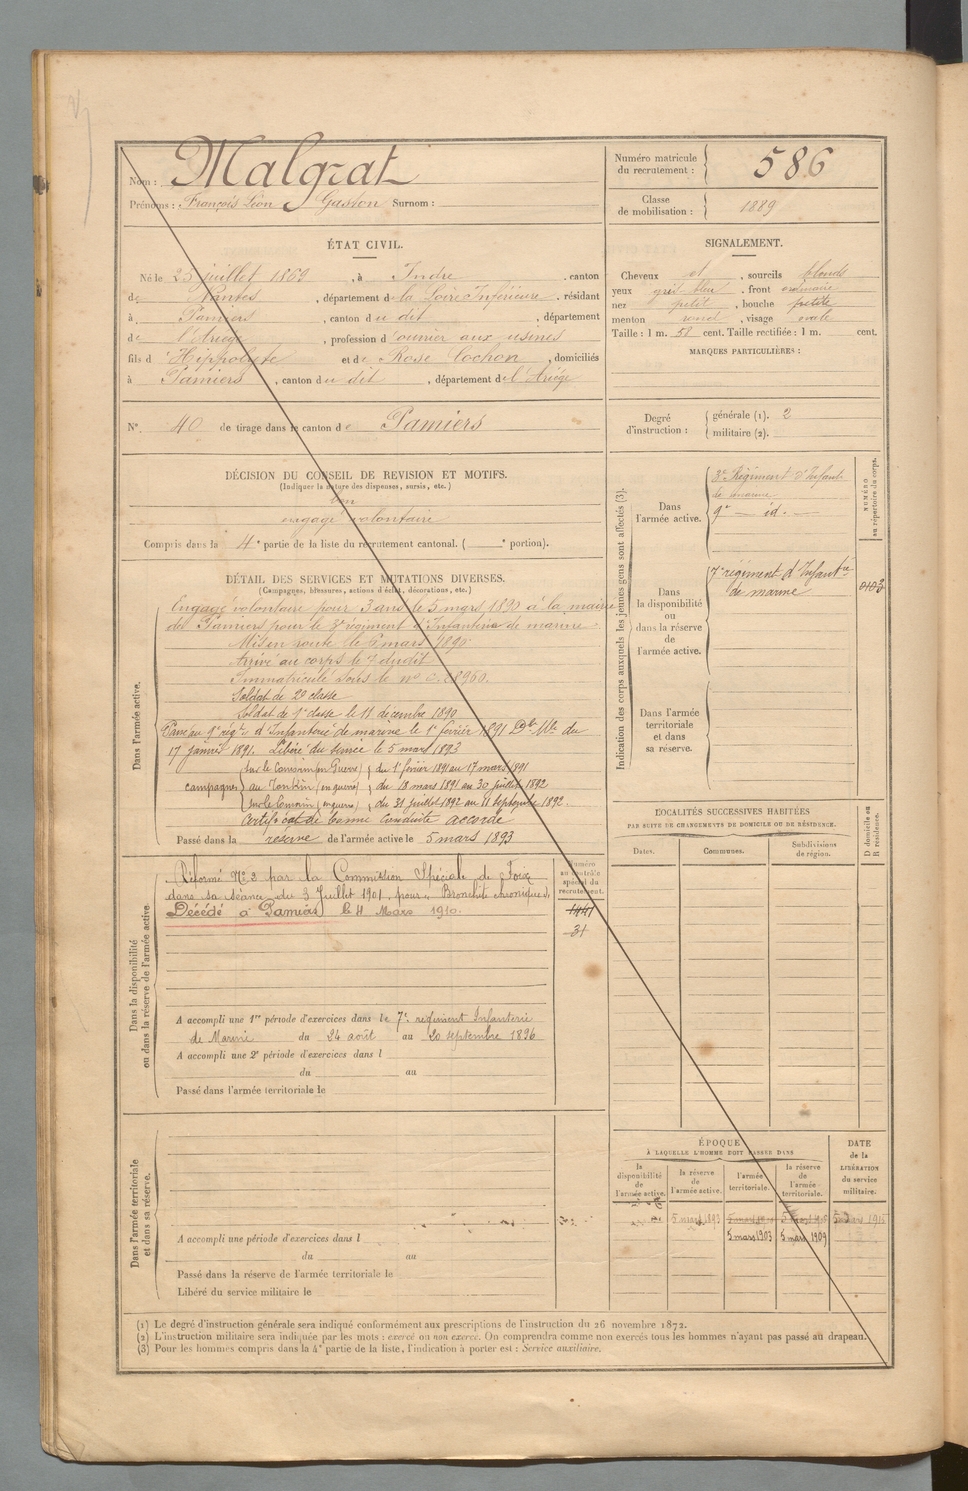 Nom : Malgrat
Prénoms : François Léon Gaston Surnom :
ÉTAT CIVIL.
Né le 25 juillet 1869, à Indre, canton
de Nantes, département de la Loire Inférieure, résidant
à Pamiers, canton du dit, département
de l'Ariège, profession d'ouvrier aux usines
fils d'Hippolyte et de Rose Cochon, domiciliés
à Pamiers, canton du dit, département de l'Ariège
N° 40 de tirage dans le canton de Pamiers
DÉCISION DU CONSEIL DE REVISION ET MOTIFS.
(Indiquer la nature des dispenses, sursis, etc.)
Bon
engagé volontaire
Compris dans la 4e partie de la liste du recrutement cantonal. ( e portion).
DÉTAIL DES SERVICES ET MUTATIONS DIVERSES.
(Campagnes, blessures, actions d'éclat, décorations, etc.)
Dans l'armée active.
Engagé volontaire pour 3 ans le 5 mars 1890 à la mairie
de Pamiers pour le 3e régiment d'Infanterie de marine.
Mis en route le 6 mars 1890
Arrivé au corps le 7 dudit
Immatriculé sous le no
Soldat de 2e classe
Soldat de 1e classe le 11 décembre 1890
Passé au 9e régt d'Infanterie de marine le 1er février 1891 Dn Mle du
17 janvier 1891. Libéré du service le 5 mars 1893
campagnes
(en Guerre) du 1er février 1891 au 17 mars 1891
au Tonkin (en guerre) du 18 mars 1891 au 30 juillet 1892
(en guerre) du 31 juillet 1892 au 11 septembre 1892.
Certificat de bonne conduite accordé
Passé dans la réserve de l'armée active le 5 mars 1893
Dans la disponibilité
ou dans la réserve de l'armée active.
Réformé No 2 par la Commission Spéciale de Foix
dans sa séance du 3 Juillet 1901, pour Bronchite chronique
Décédé à Pamiers le 4 Mars 1910.
Numéro
au contrôle
spécial du
recrutement.
1441
31
A accompli une 1re période d'exercices dans le 7e régiment Infanterie
de Marine du 24 août au 20 septembre 1896
A accompli une 2e période d'exercices dans l
du au
Passé dans l'armée territoriale le
Dans l'armée territoriale
et dans sa réserve.
A accompli une période d'exercices dans l
du au
Passé dans la réserve de l'armée territoriale le
Libéré du service militaire le
Numéro matricule
du recrutement : 586
Classe
de mobilisation : 1889
SIGNALEMENT.
Cheveux et, sourcils blonds
yeux gris bleu, front ordinaire
nez petit, bouche petite
menton rond, visage ovale
Taille : 1 m. 58 cent. Taille rectifiée : 1 m. cent.
MARQUES PARTICULIÈRES :
Degré
d'instruction :
générale (1). 2
militaire (2).
Indication des corps auxquels les jeunes gens sont affectés (3).
NUMÉRO
au répertoire du corps.
Dans
l'armée active.
3e Régiment d'Infant
de marine
9e — id. —
Dans
la disponibilité
ou
dans la réserve
de
l'armée active.
7e régiment d'Infantie
de marine
Dans l'armée
territoriale
et dans
sa réserve.
LOCALITÉS SUCCESSIVES HABITÉES
PAR SUITE DE CHANGEMENTS DE DOMICILE OU DE RÉSIDENCE.
D domicile ou
R résidence.
Dates.
Communes.
Subdivisions
de région.
ÉPOQUE
À LAQUELLE L'HOMME DOIT PASSER DANS
DATE
de la
LIBÉRATION
du service
militaire.
la
disponibilité
de
l'armée active.
la réserve
de
l'armée active.
l'armée
territoriale.
la réserve
de
l'armée
territoriale.
5 mars 1893
1915
5 mars 1903 5 mars 1909
(1) Le degré d'instruction générale sera indiqué conformément aux prescriptions de l'instruction du 26 novembre 1872.
(2) L'instruction militaire sera indiquée par les mots : exercé ou non exercé. On comprendra comme non exercés tous les hommes n'ayant pas passé au drapeau.
(3) Pour les hommes compris dans la 4e partie de la liste, l'indication à porter est : Service auxiliaire.